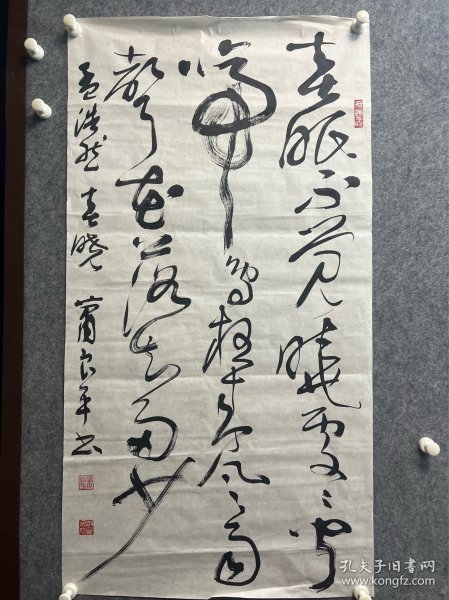 春眠不觉晓处处闻
啼鸟夜来风雨
声花落知多少
孟浩然 春晓 萧良平书
孔夫子旧书网
www.kongfz.com